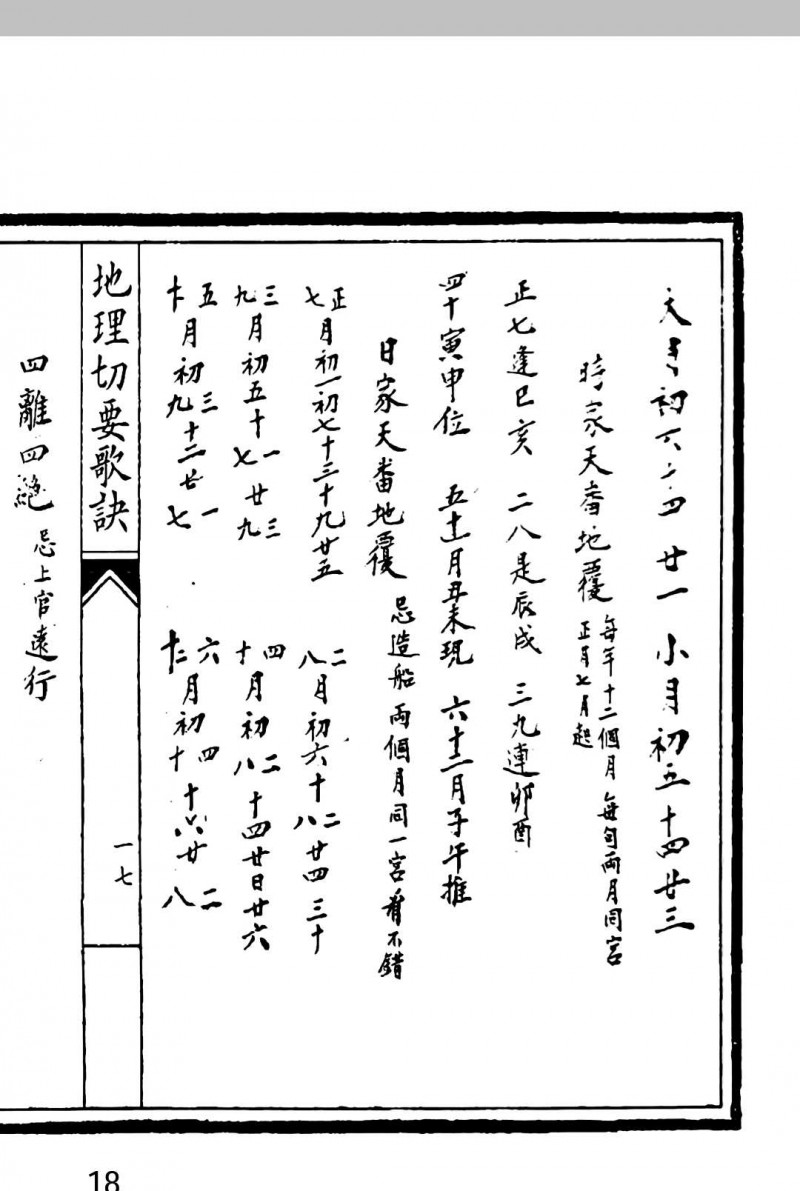 大月初六 十四 廿一 小月初五十四廿三
時家天番地覆 每年十二個月 每句兩月同宮
正月七月起
正七逢巳亥 二八是辰戌 三九連卯酉
四十寅申位 五十一月丑未現 六十二月子午推
日家天番地覆 忌造船 兩個月同一宮看不錯
正七月初一初七十三十九廿五 二八月初六十二十八廿四三十
三九月初五十一十七廿三廿九 四十月初二初八十四廿日廿六
五十一月初三初九十二廿一廿七 六十二月初四初十十六廿二廿八
地理切要歌訣
一七
四離四絕 忌上官遠行
18